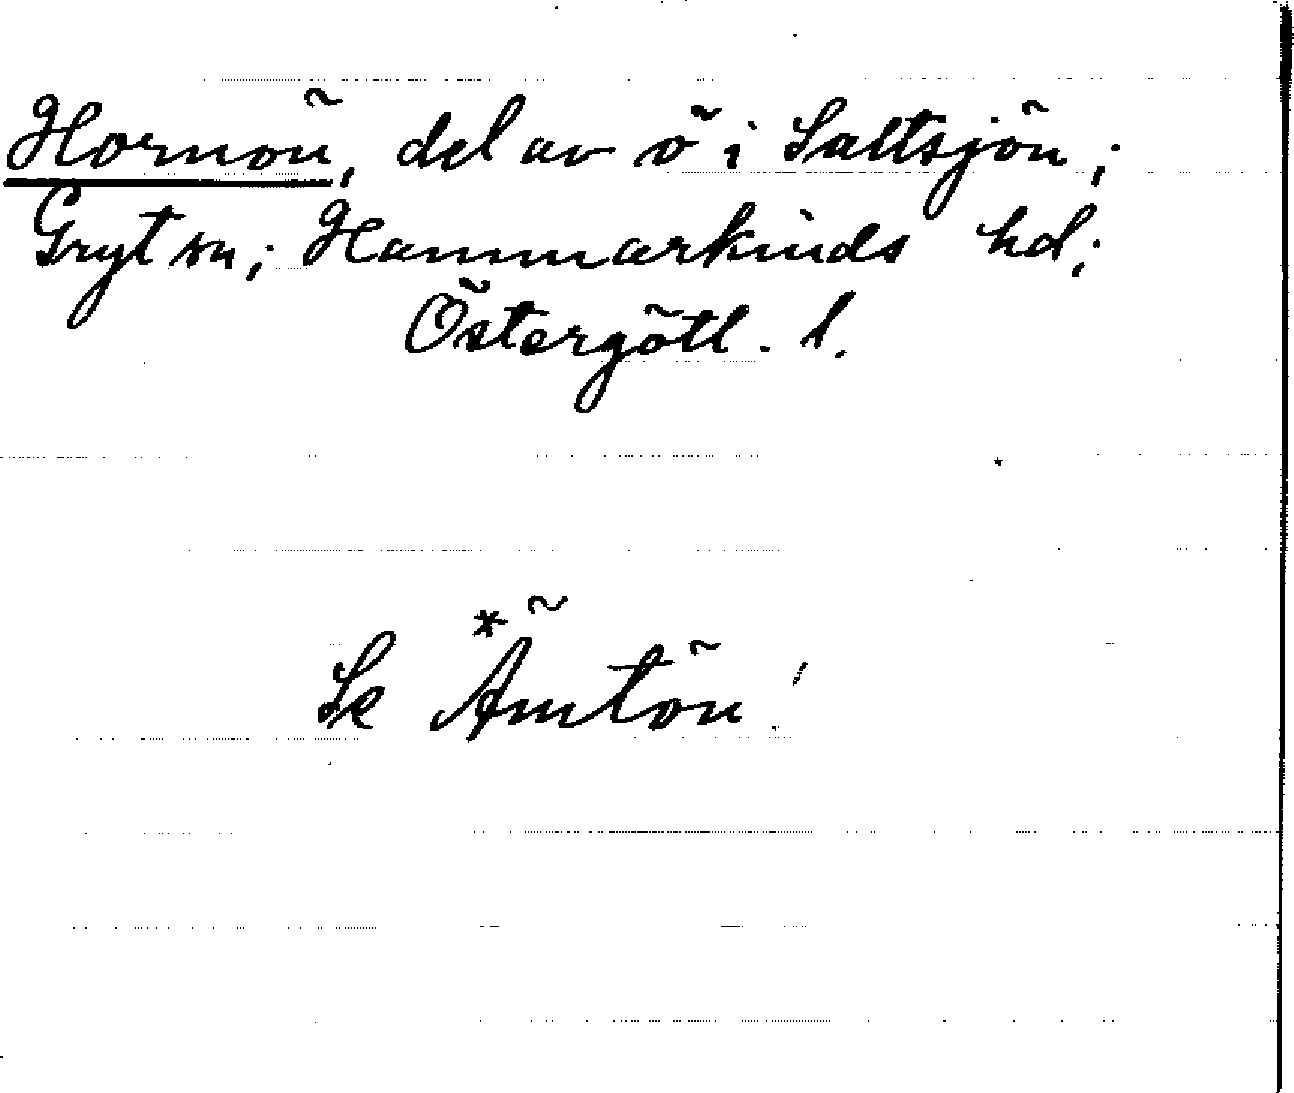 Hornön, del av ö i Saltsjön;
Gryt sn; Hammarkinds hd;
Östergötl. l.
Se *Ämtön!